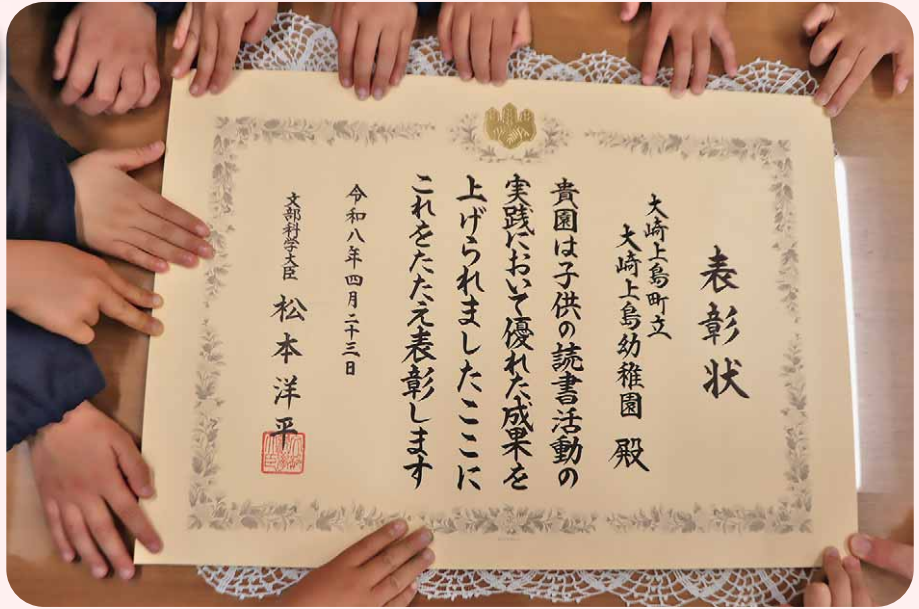 表彰状
大崎上島町立
大崎上島幼稚園 殿
貴園は子供の読書活動の
実践において優れた成果を
上げられましたここに
これをたたえ表彰します
令和八年四月二十三日
文部科学大臣 松本洋平